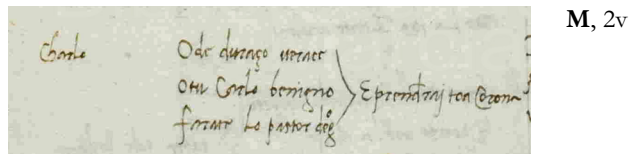 M, 2v
Charlo
Ode durazo uerace
Otu Carlo benigno
farate lo pastor degº
E prendraj toa Corona